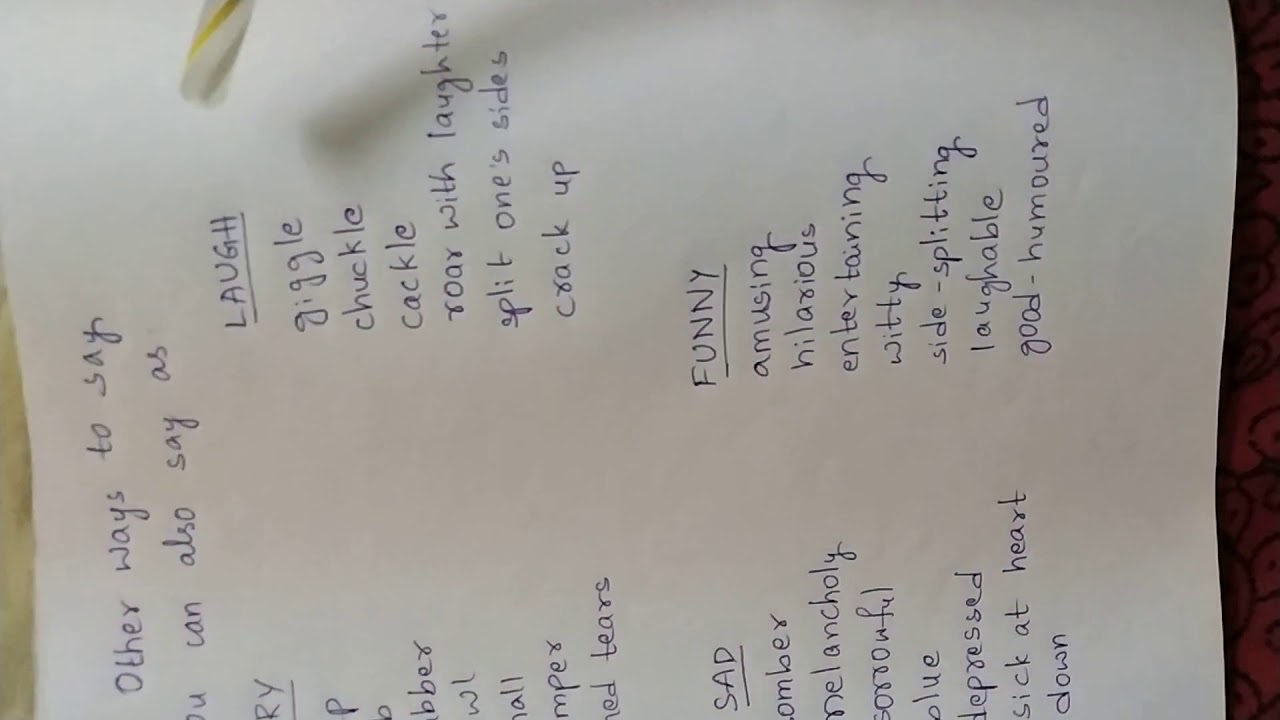 Other ways to say
ou can also say as
RY
p
b
bber
wl
all
mper
ed tears
LAUGH
giggle
chuckle
cackle
roar with laughter
split one's sides
crack up
SAD
omber
melancholy
sorrowful
blue
depressed
sick at heart
down
FUNNY
amusing
hilarious
entertaining
witty
side-splitting
laughable
good-humoured